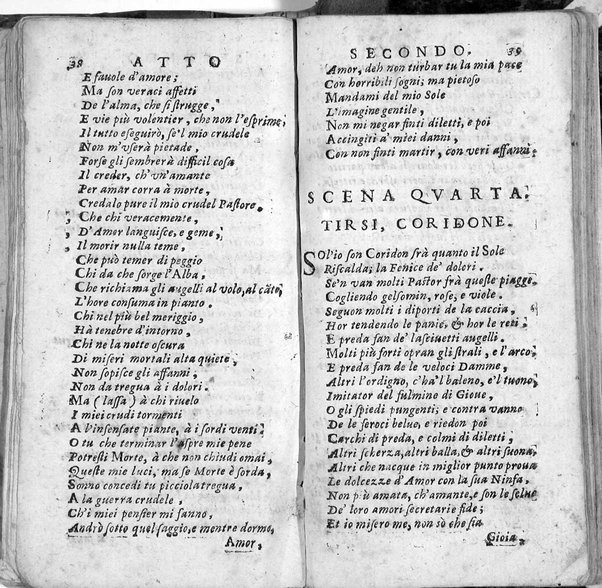 38 ATTO
E fauole d'amore;
Ma son veraci affetti
De l'alma, che si strugge,
E vie più volentier, che non l'esprime,
Il tutto eseguirò, se'l mio crudele
Non m'vserà pietade,
Forse gli sembrerà difficil cosa
Il creder, ch'vn'amante
Per amar corra à morte,
Credalo pure il mio crudel Pastore.
Che chi veracemente,
D'Amor languisce, e geme,
Il morir nulla teme,
Che può temer di peggio
Chi da che sorge l'Alba,
Che richiama gli augelli al volo, al cāto,
L'hore consuma in pianto.
Chi nel più bel meriggio,
Hà tenebre d'intorno,
Chi ne la notte oscura
Di miseri mortali alta quiete,
Non sopisce gli affanni,
Non da tregua à i dolori.
Ma (lassa) à chi riuelo
I miei crudi tormenti
A l'insensate piante, à i sordi venti?
O tu che terminar l'aspre mie pene
Potresti Morte, à che non chiudi omai,
Queste mie luci, ma se Morte è sorda,
Sonno concedi tu picciola tregua,
A la guerra crudele,
Ch'i miei pensier mi sanno,
Andrò sotto quel faggio, e mentre dormo,
Amor,
SECONDO. 39
Amor, deh non turbar tu la mia pace
Con horribili sogni; ma pietoso
Mandami del mio Sole
L'imagine gentile,
Non mi negar finti diletti, e poi
Accingiti à miei danni,
Con non finti martir, con veri affanni.
SCENA QVARTA.
TIRSI, CORIDONE.
Sol'io son Coridon frà quanto il Sole
Riscalda; la Fenice de' dolori.
Se'n van molti Pastor frà queste piagge
Cogliendo gelsomin, rose, e viole.
Seguon molti i diporti de la caccia,
Hor tendendo le panie, & hor le reti
E preda fan de' lasciuetti augelli.
Molti più forti opran gli strali, e l'arco,
E preda fan de le veloci Damme,
Altri l'ordigno, c'ha'l baleno, e'l tuono,
Imitator del fulmine di Gioue,
O gli spiedi pungenti; e contra vanno
De le feroci belue, e riedon poi
Carchi di preda, e colmi di diletti,
Altri scherza, altri balla, & altri suona,
Altri che nacque in miglior punto proua
Le dolcezze d'Amor con la sua Ninfa,
Non più amata, ch'amante, e son le selue
De' loro amori secretarie fide;
Et io misero me, non sò che sia
Gioia,